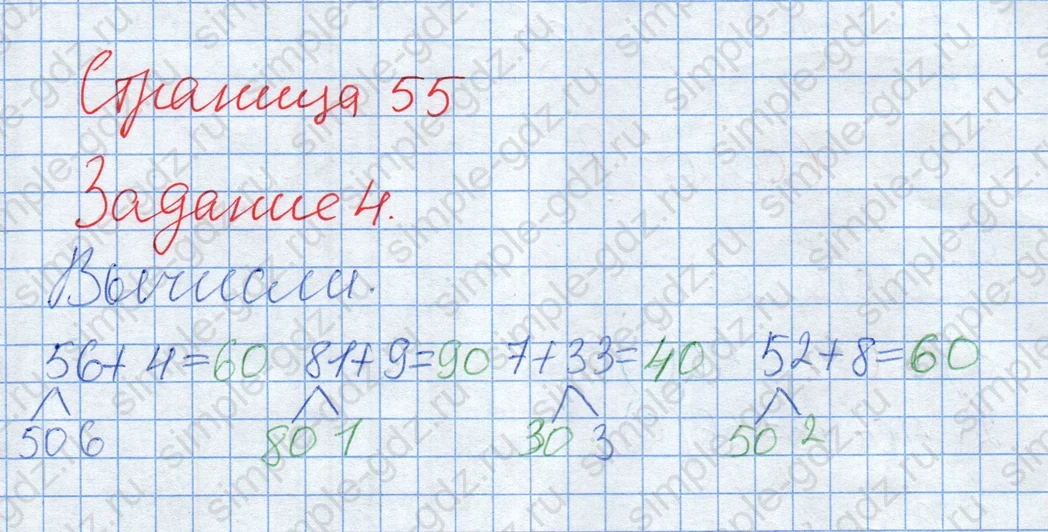 Страница 55
Задание 4.
Вычисли.
56+4=60 81+9=90 7+33=40 52+8=60
50 6 80 1 30 3 50 2